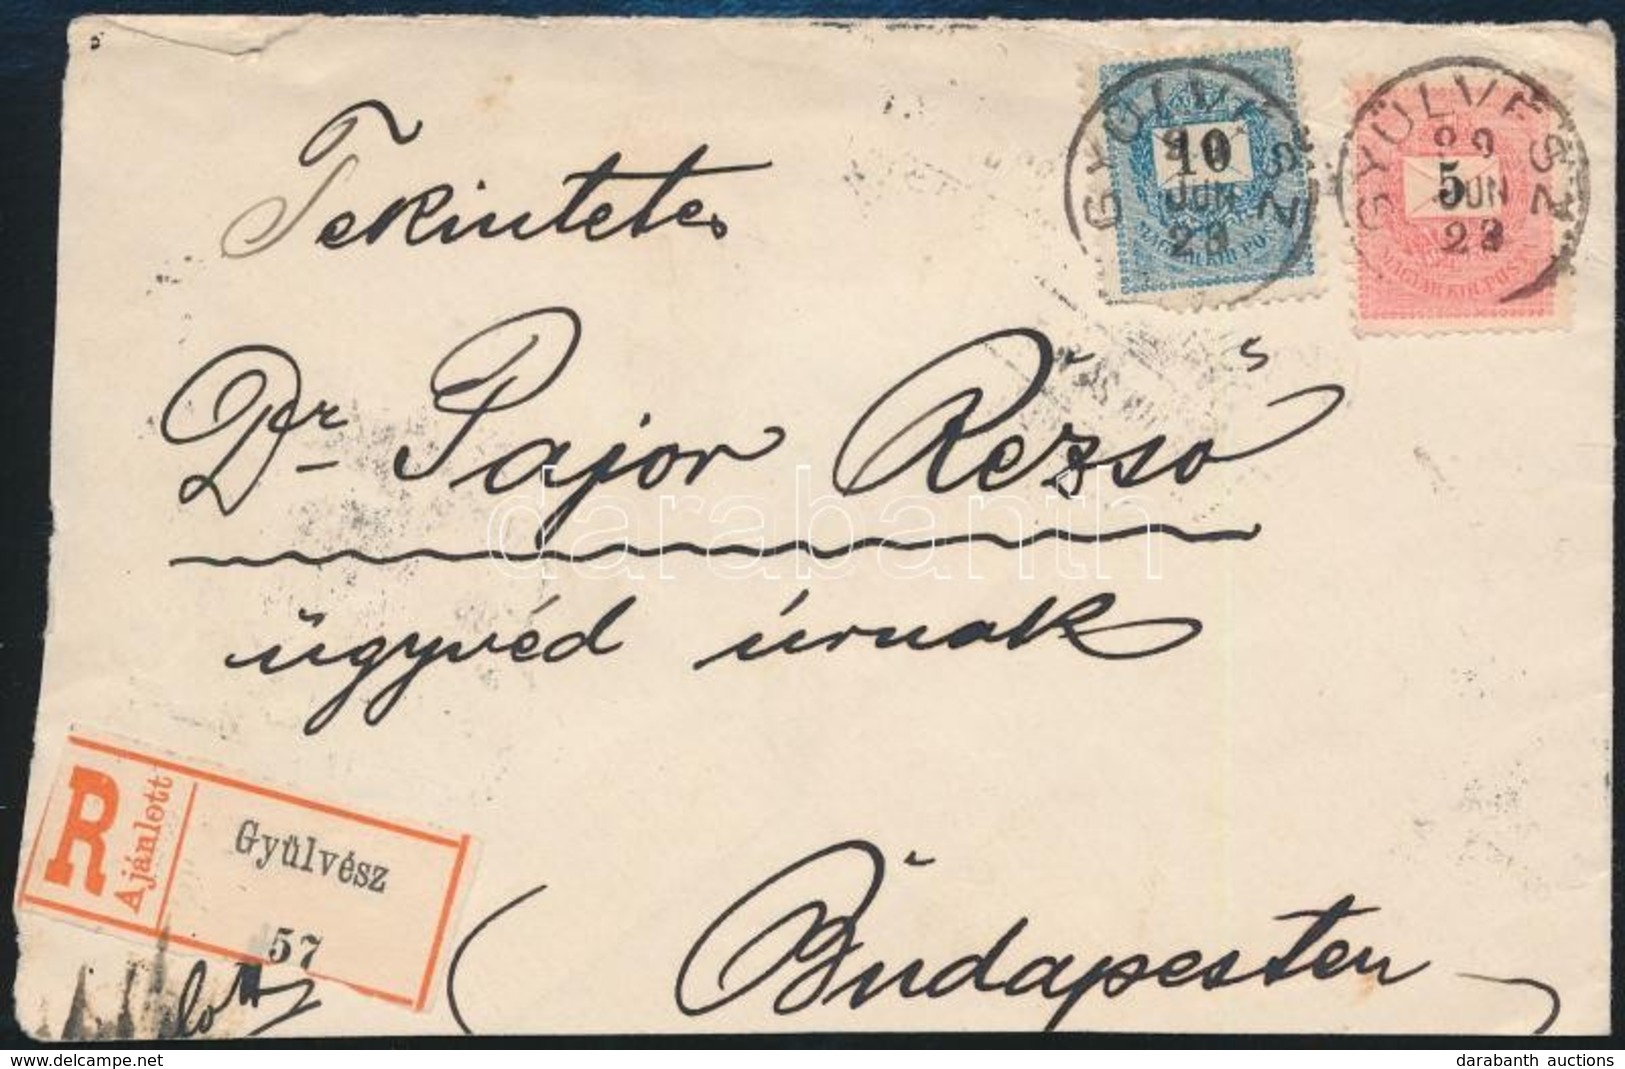 GYÜLVÉSZ
10
JUN
23
MAGYAR KIR. POSTA
GYÜLVÉSZ
5
JUN
23
MAGYAR KIR. POSTA
Tekintetes
Dr Pajor Rezső
ügyvéd úrnak
Budapesten
R
Ajánlott
Gyülvész
57
darabanth
www.delcampe.net
darabanth auctions